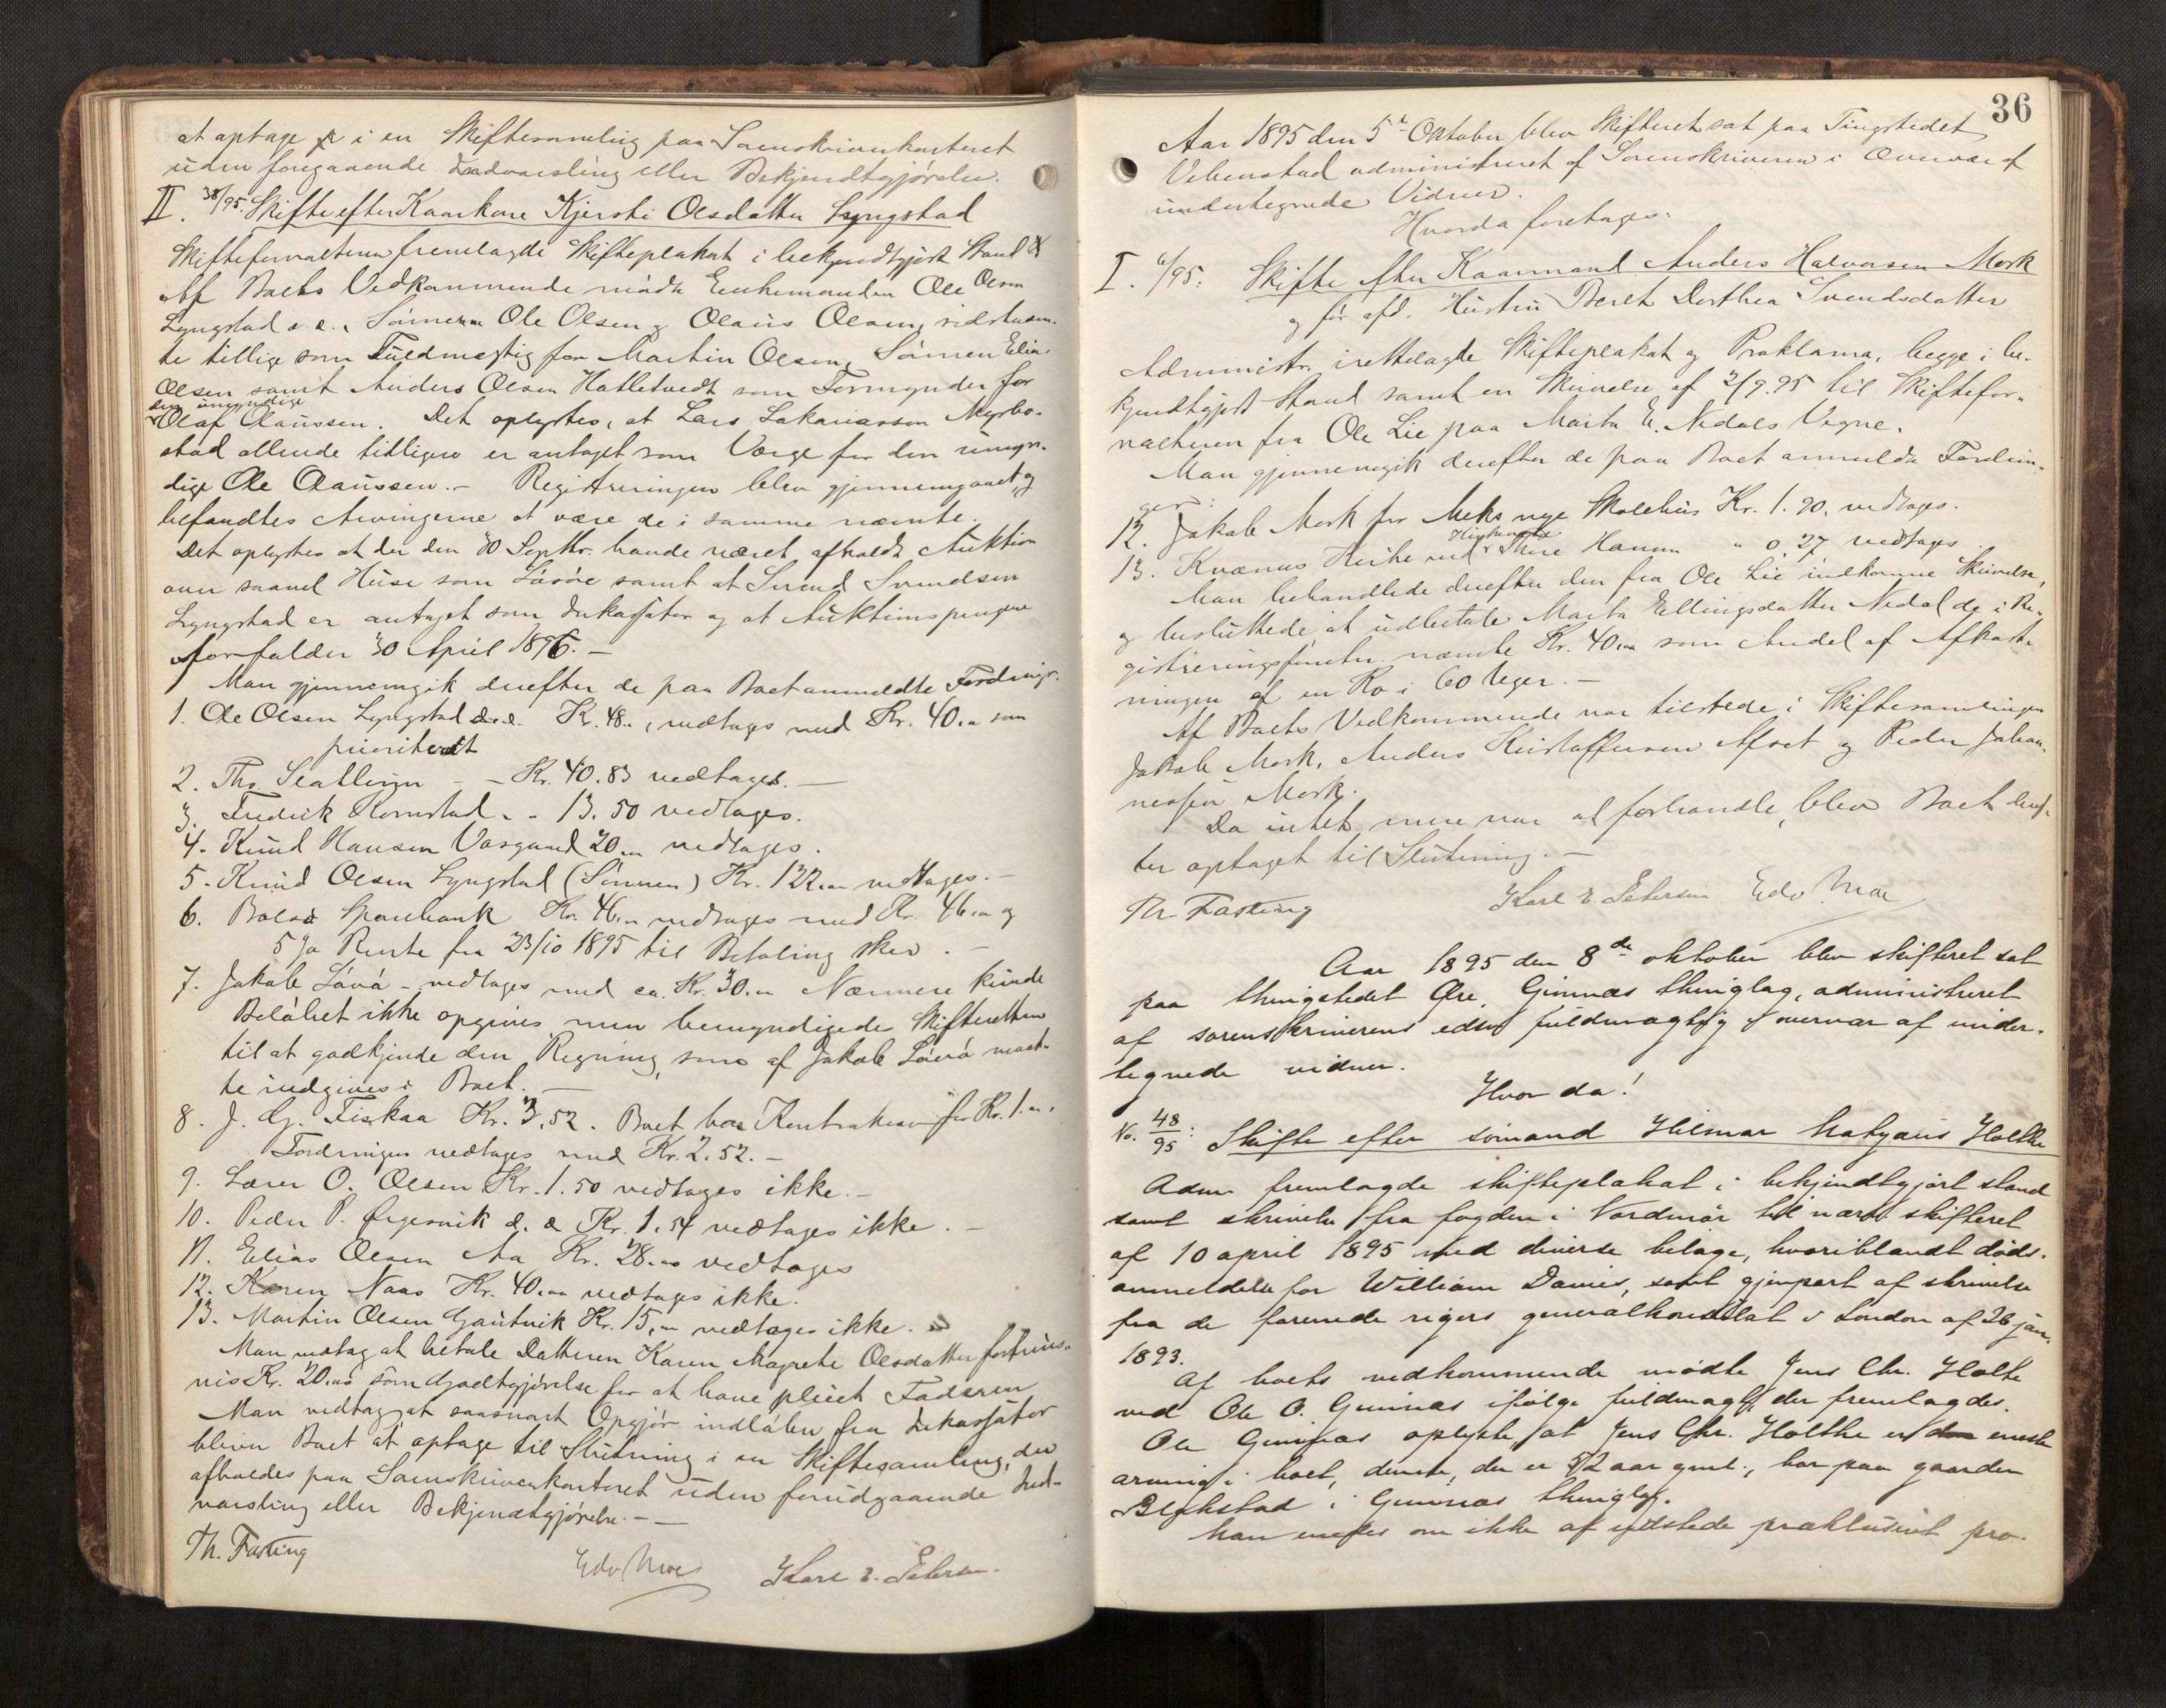 at optage i en Skiftesamling paa Sorenskriverkontoret
uden foregaaende Indvarsling eller Bekjendtgjørelse.
II. 38/95. Skifte efter Kaarkone Kjersti Olsdatter Lyngstad
Skifteforvalteren fremlagde Skifteplakat i bekjendtgjort Stand
Af Boets Vedkommende mødte Enkemanden Ole Olsen
Lyngstad d. e., Sønnerne Ole Olsen og Olaus Olsen, sidstnævn-
te tillige som Fuldmægtig for Martin Olsen, Sønnen Elias
Olsen samt Anders Olsen Hatletvedt som Formynder for
den umyndige
Olaf Olaussen. Det oplystes, at Lars Sakariassen Myrbo-
stad allerede tidligere er antaget som Værge for den umyn-
dige Ole Olaussen.- Registreringen blev gjennemgaaet, og
befandtes Arvingerne at være de i samme nævnte.
Det oplystes at der den 30 Septbr. havde været afholdt Auktion
over saavel Huse som Løsøre samt at Svend Svendsen
Lyngstad er antaget som Inkassator og at Auktionspengene
forfalder 30 April 1896. -
Man gjennemgik derefter de paa Boet anmeldte Fordringer.
1. Ole Olsen Lyngstad d. e. Kr. 48.. , vedtages med Kr. 40.. som
prioriteret
2. Ths. - - Kr. 40.83 vedtages. -
3. Fredrik Kornstad - - 13.50 vedtages.
4. Knud Hansen Vaagaard 20.. vedtages.
5. Knud Olsen Lyngstad (Sønnen) Kr. 122.. vedtages. -
6. Bolsø Sparebank Kr. 46.. vedtages med Kr. 46.. og
5 % Rente fra 23/10 1895 til Betaling sker. -
7. Jakob Løvø - vedtages med ca. Kr. 30.. Nærmere kunde
Beløbet ikke opgives men bemyndigede Skifteretten
til at godkjende den Regning, som af Jakob Løvø maat-
te indgives i Boet. -
8. J. G. Fiskaa Kr. 3.52. Boet har Kontrakrav for Kr. 1...
Fordringen vedtages med Kr. 2.52. -
9. Lærer O. Olsen Kr. 1.50 vedtages ikke. -
10. Peder P. Ørgesvik d. æ Kr. 1.54 vedtages ikke. -
11. Elias Olsen Aa Kr. 28.. vedtages
12. Karen Naas Kr. 40.. vedtages ikke.
13. Martin Olsen Gautvik Kr. 15.. vedtages ikke.
Man vedtog at betale Datteren Karen Magrete Olsdatter
Kr. 20.. som Godtgjørelse for at have pleiet Faderen
Man vedtog at saasnart Opgjør indløber fra Inkassator
bliver Boet at optage til Slutning i en Skiftesamling, der
afholdes paa Sorenskriverkontoret uden forudgaaende Ind-
varsling eller Bekjendtgjørelse. - -
Th. Fasting Edv Moe Karl E. Petersen.
36
Aar 1895 den 5te Oktober blev Skifteret sat paa Tingstedet
Vebenstad administreret af Sorenskriveren i Overvær af
undertegnede Vidner.
Hvorda foretages:
I. 6/95: Skifte efter Kaarmand Anders Halvorsen Mork
og før afd. Hustru Beret Dorthea Svendsdatter
Administr. irettelagde Skifteplakat og Proklama, begge i be-
kjendtgjort Stand samt en Skrivelse af 2/9.95 til Skiftefor-
valteren fra Ole Lie paa Marta E. Nedals Vegne.
Man gjennemgik derefter de paa Boet anmeldte Fordrin-
ger:
12. Jakob Mork for Meks nye Skolehus Kr. 1.90. vedtages.
13. Kvænes Kirke ved Kirkeværge Hansen " 0.27 vedtages
Man behandlede derefter den fra Ole Lie indkomne Skrivelse,
og besluttede at udbetale Marta Ellingsdatter Nedal de i Re-
gistreringsforretn. nævnte Kr. 40.. som Andel af Afkast-
ningen af en Ko i 60 Uger. -
Af Boets Vedkommende var tilstede i Skiftesamlingen
Jakob Mork, Anders Kristoffersen og Peder Johan-
nessen Mork.
Da intet mere var at forhandle, blev Boet deref-
ter optaget til Slutning. -
Th. Fasting Karl E. Petersen Edv Moe
Aar 1895 den 8de oktober blev skifteret sat
paa thingstedet Øre, Gimnæs thinglag, administreret
af sorenskriverens edsv. fuldmægtig i overvær af under-
tegnede vidner.
Hvor da!
No. 48/95: Skifte efter sømand Hilmar Holthe
Adm. fremlagde skifteplakat i bekjendtgjort stand
samt skrivelse fra fogden i Nordmør til nærv. skifteret
af 10 april 1895 med diverse bilage, hvoriblandt døds-
anmeldelse for William Davies, samt gjenpart af skrivelse
fra de forenede rigers generalkonsulat i London af 26 jan.
1893.
Af boets vedkommende mødte Jens Chr. Holthe
ved Ole O. Gimnæs ifølge fuldmagt, der fremlagdes.
Ole Gimnæs oplyste, at Jens Chr. Holthe er den eneste
arving i boet, denne, der er 52 aar gml., bor paa gaarden
Blekstad i Gimnæs thinglag.
Man om ikke at udstede præklusivt pro-